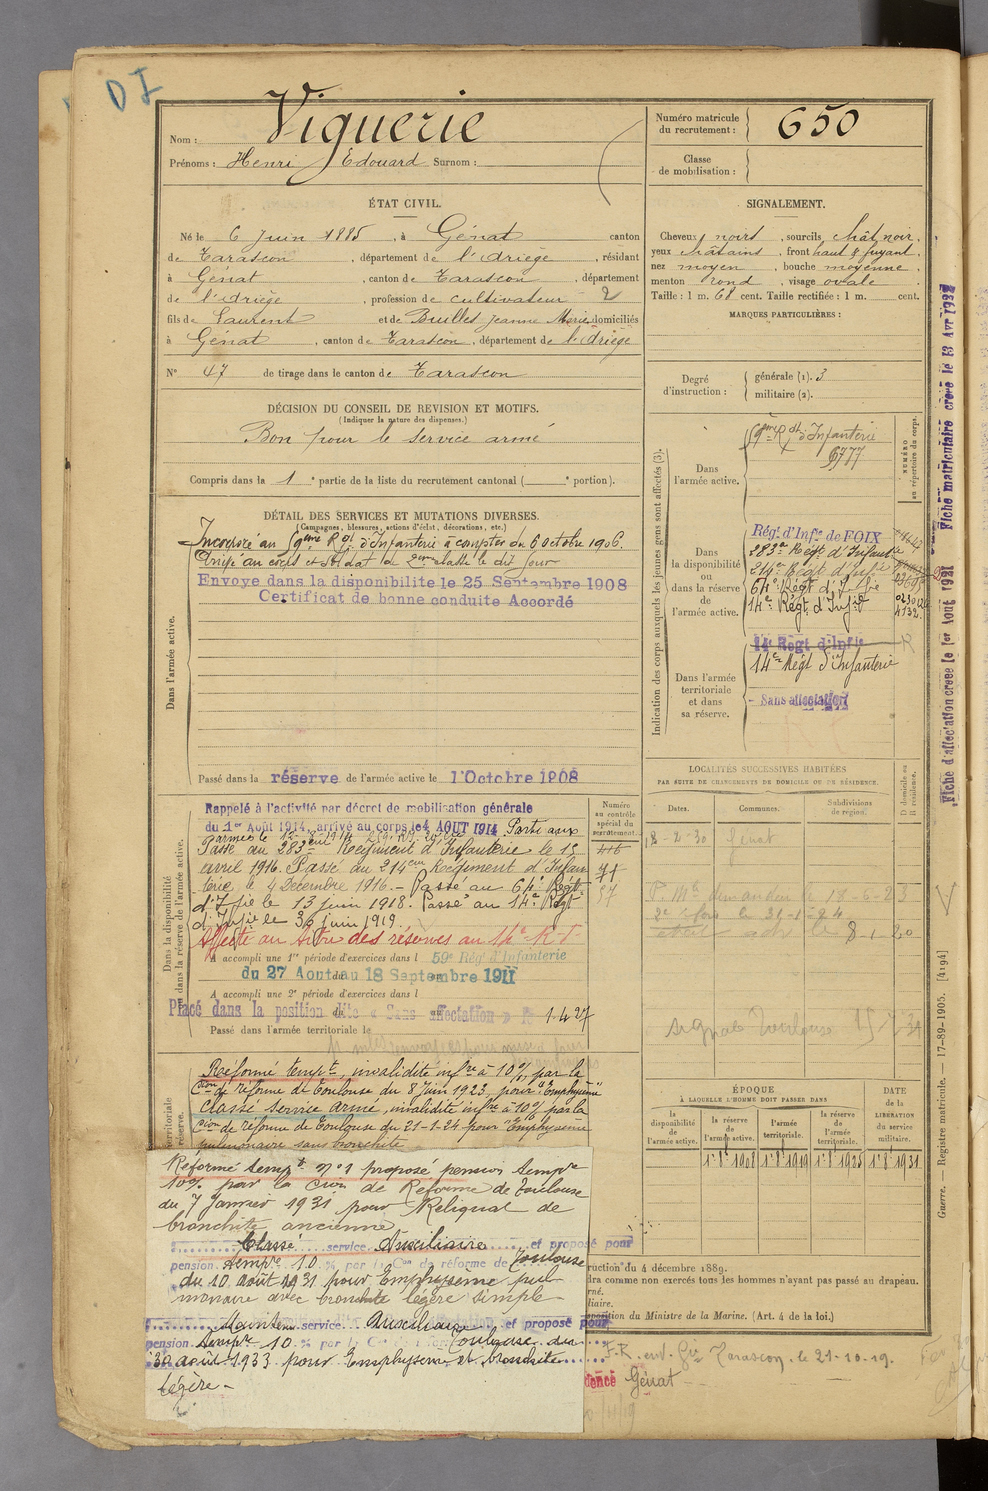 DI
Nom : Viguerie
Prénoms : Henri Edouard Surnom :
Numéro matricule du recrutement : 650
Classe de mobilisation :
ÉTAT CIVIL.
Né le 6 Juin 1885, à Génat canton
de Tarascon, département de l'Ariège, résidant
à Génat, canton de Tarascon, département
de l'Ariège, profession de cultivateur 2
fils de Laurent et de Builles Jeanne Marie domiciliés
à Génat, canton de Tarascon, département de l'Ariège
N° 47 de tirage dans le canton de Tarascon
SIGNALEMENT.
Cheveux noirs, sourcils chât noir,
yeux châtains, front haut & fuyant,
nez moyen, bouche moyenne,
menton rond, visage ovale
Taille : 1 m. 68 cent. Taille rectifiée : 1 m. cent.
MARQUES PARTICULIÈRES :
Degré d'instruction : générale (1). 3
militaire (2).
DÉCISION DU CONSEIL DE REVISION ET MOTIFS.
(Indiquer la nature des dispenses.)
Bon pour le service armé
Compris dans la 1 e partie de la liste du recrutement cantonal ( e portion).
DÉTAIL DES SERVICES ET MUTATIONS DIVERSES.
(Campagnes, blessures, actions d'éclat, décorations, etc.)
Dans l'armée active.
Incorporé au 59ème Rgt d'Infanterie à compter du 6 octobre 1906.
Arrivé au corps et soldat de 2eme classe le dit jour
Envoye dans la disponibilite le 25 Septembre 1908
Certificat de bonne conduite Accordé
Passé dans la réserve de l'armée active le 1 Octobre 1908
Indication des corps auxquels les jeunes gens sont affectés (3).
NUMÉRO au répertoire du corps.
Dans l'armée active.
59ème Rgt d'Infanterie
6777
Dans la disponibilité ou dans la réserve de l'armée active.
Régt. d'Infie de FOIX
283e Régt d'Infante
214e Régt d'Infie
64e Régt d'Infie
14e Régt d'Infie
4132
Dans l'armée territoriale et dans sa réserve.
14e Régt d'Infie
14e Régt d'Infanterie
Sans affectation
Fiche d'affectation créée le 1er Aout 1921
Fiche matriculaire créée le 13 Avr 1932
Dans la disponibilité ou dans la réserve de l'armée active.
Numéro au contrôle spécial du recrutement.
Rappelé à l'activité par décret de mobilisation générale
du 1er Août 1914, arrivé au corps le 4 AOUT 1914 Parti aux
armées le 12-8-1914
Passé au 283eme Régiment d'Infanterie le 15
avril 1916. Passé au 214eme Régiment d'Infan
terie le 4 Décembre 1916. - Passé au 64e Régt
d'Ifie le 13 juin 1918. Passé au 14e Régt
d'Infie le 30 juin 1919.
Affecté au titre des réserves au 14e R.I.
A accompli une 1re période d'exercices dans l 59e Rég. d'Infanterie
du 27 Aout au 18 Septembre 1911
A accompli une 2e période d'exercices dans l
Placé dans la position dite « Sans affectation » le 1.4.27
Passé dans l'armée territoriale le
LOCALITÉS SUCCESSIVES HABITÉES
PAR SUITE DE CHANGEMENTS DE DOMICILE OU DE RÉSIDENCE.
Dates. Communes. Subdivisions de région. D domicile ou R résidence.
2-30 Génat
18-6-23
2e 31-1-24
8-1-20
signalé Toulouse 15
ÉPOQUE
À LAQUELLE L'HOMME DOIT PASSER DANS
DATE de la LIBERATION du service militaire.
la disponibilité de l'armée active. la réserve de l'armée active. l'armée territoriale. la réserve de l'armée territoriale.
1er 8e 1908 1er 8e 1919 1er 8e 1925 1er 8e 1931
Réformé tempt, invalidité infre à 10%, par la
Cion de réforme de Toulouse du 8 Juin 1923 pour "Emphysème"
Classé Service armé, invalidité infre à 10% par la
Cion de réforme de Toulouse du 21-1-24 pour Emphyseme
pulmonaire sans bronchite
Réformé tempt n°1 proposé pension tempre
10% par la Cion de Réforme de Toulouse
du 7 Janvier 1931 pour Reliquat de
bronchite ancienne
Classé service Auxiliaire et proposé pour
pension tempre 10 % par la Con de réforme de Toulouse
du 10 août 1931 pour Emphysème pul
monaire avec bronchite légère simple -
Mainten service auxiliaire et proposé pour
pension tempre 10 % par la C Toulouse du
30 août 1933 pour Emphysème et bronchite
légère -
ruction du 4 décembre 1889.
dra comme non exercés tous les hommes n'ayant pas passé au drapeau.
rné.
liaire.
position du Ministre de la Marine. (Art. 4 de la loi.)
F.R. env. Gie Tarascon. le 21-10-19.
dence Génat
Guerre. — Registre matricule. — 17-89-1905. [4194]